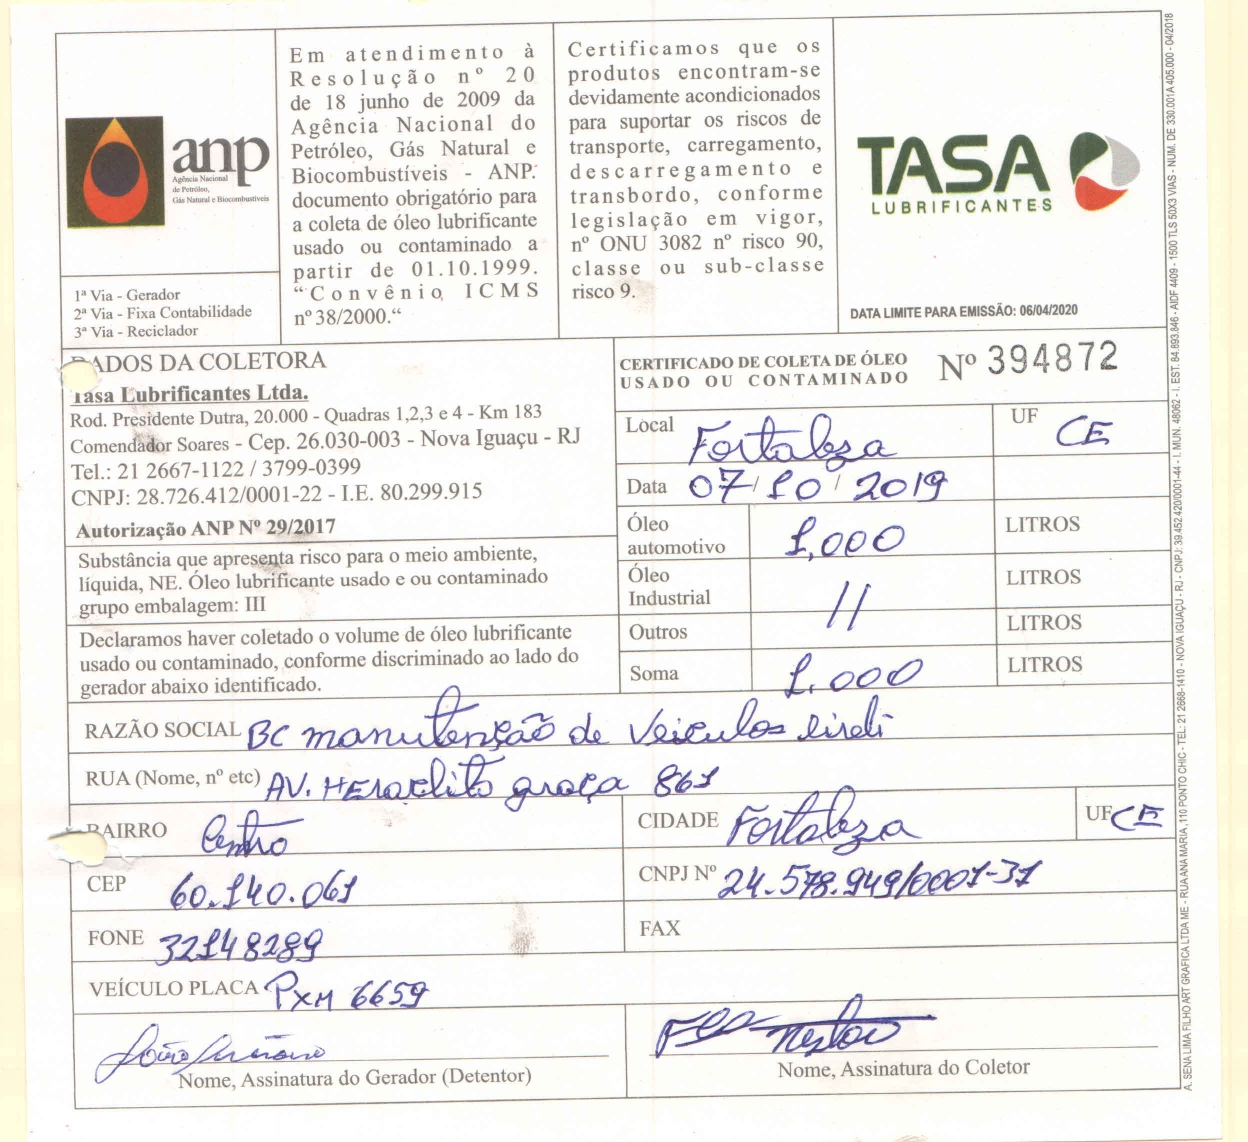 anp
Agência Nacional
de Petróleo,
Gás Natural e Biocombustíveis
1ª Via - Gerador
2ª Via - Fixa Contabilidade
3ª Via - Reciclador
Em atendimento à
Resolução nº 20
de 18 junho de 2009 da
Agência Nacional do
Petróleo, Gás Natural e
Biocombustíveis - ANP.
documento obrigatório para
a coleta de óleo lubrificante
usado ou contaminado a
partir de 01.10.1999.
“Convênio ICMS
nº 38/2000.“
Certificamos que os
produtos encontram-se
devidamente acondicionados
para suportar os riscos de
transporte, carregamento,
descarregamento e
transbordo, conforme
legislação em vigor,
nº ONU 3082 nº risco 90,
classe ou sub-classe
risco 9.
TASA
LUBRIFICANTES
DATA LIMITE PARA EMISSÃO: 06/04/2020
DADOS DA COLETORA
Tasa Lubrificantes Ltda.
Rod. Presidente Dutra, 20.000 - Quadras 1,2,3 e 4 - Km 183
Comendador Soares - Cep. 26.030-003 - Nova Iguaçu - RJ
Tel.: 21 2667-1122 / 3799-0399
CNPJ: 28.726.412/0001-22 - I.E. 80.299.915
Autorização ANP Nº 29/2017
Substância que apresenta risco para o meio ambiente,
líquida, NE. Óleo lubrificante usado e ou contaminado
grupo embalagem: III
Declaramos haver coletado o volume de óleo lubrificante
usado ou contaminado, conforme discriminado ao lado do
gerador abaixo identificado.
CERTIFICADO DE COLETA DE ÓLEO
USADO OU CONTAMINADO Nº 394872
Local Fortaleza UF CE
Data 07/10/2019
Óleo automotivo 1,000 LITROS
Óleo Industrial // LITROS
Outros LITROS
Soma 1.000 LITROS
RAZÃO SOCIAL BC manutenção de Veiculos Eireli
RUA (Nome, nº etc) AV. HEraclito graça 861
BAIRRO Centro CIDADE Fortaleza UF CE
CEP 60.140.061 CNPJ Nº 24.578.949/0001-31
FONE 32148289 FAX
VEÍCULO PLACA PXM 6659
Nome, Assinatura do Gerador (Detentor)
Nome, Assinatura do Coletor
A. SENA LIMA FILHO ART GRAFICA LTDA ME - RUA ANA MARIA, 110 PONTO CHIC - TEL: 21 2668-1410 - NOVA IGUAÇU - RJ - CNPJ: 39.452.420/0001-44 - I. MUN. 48062 - I. EST. 84.893.846 - AIDF 4409 - 1500 TLS 50X3 VIAS - NUM. DE 330.001A 405.000 - 04/2018